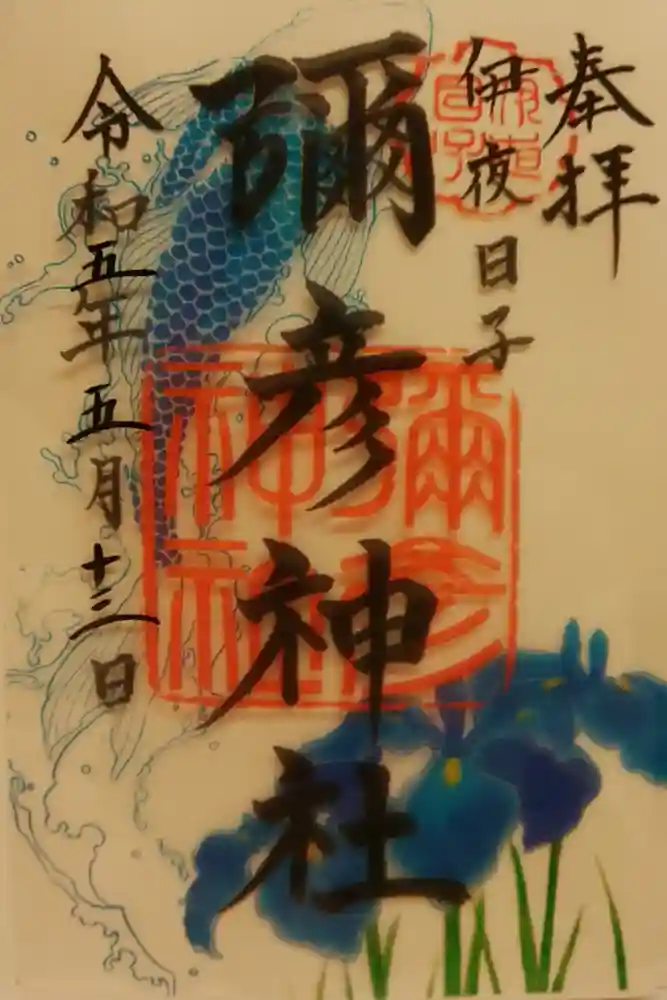 奉拝
伊夜日子
彌彦神社
令和五年五月十三日
彌彦神社